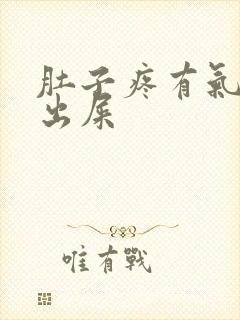 肚子疼有氣
出屎
唯有戰